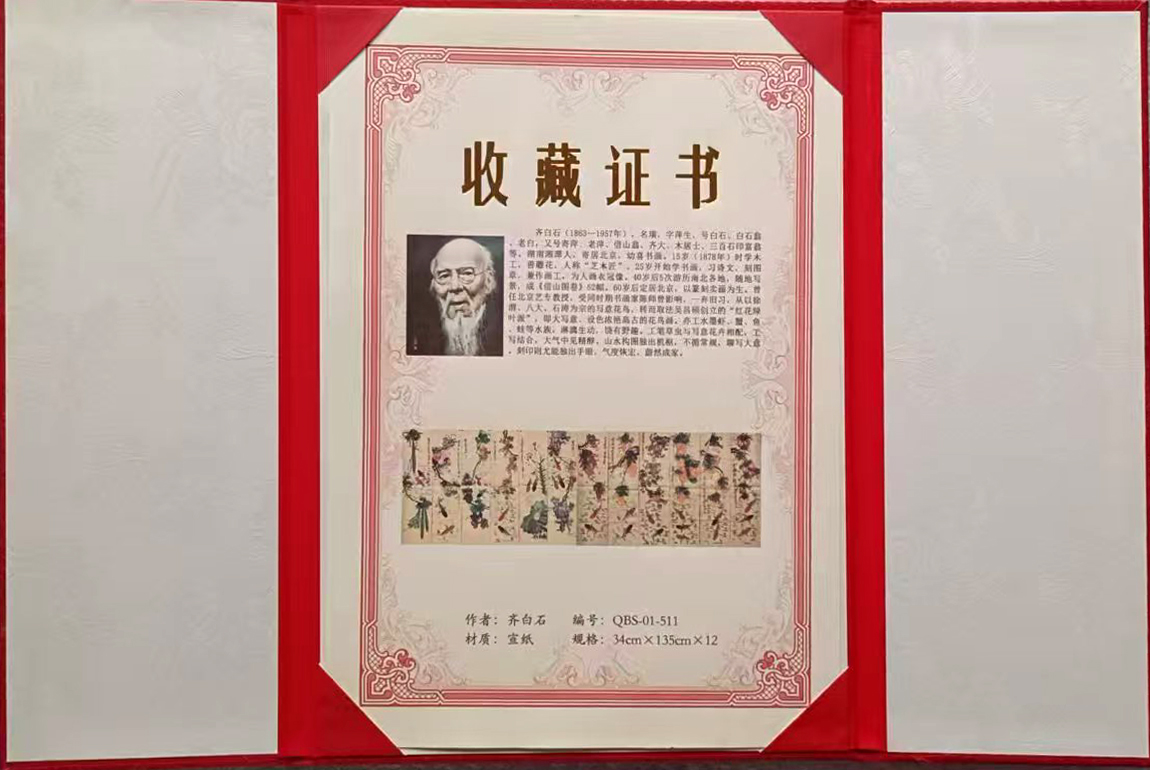 收藏证书
齐白石（1863—1957年），名璜，字萍生，号白石、白石翁
、老白，又号寄萍、老萍、借山翁、齐大、木居士、三百石印富翁
等，湖南湘潭人，寄居北京，幼喜书画，15岁（1878年）时学木
工，善雕花，人称“芝木匠”，25岁开始学书画，习诗文、刻图
章，兼作画工，为人画衣冠像。40岁后5次游历南北各地，随地写
景，成《借山图卷》52幅。60岁后定居北京，以篆刻卖画为生。曾
任北京艺专教授，受同时期书画家陈师曾影响，一弃旧习，从以徐
渭、八大、石涛为宗的写意花鸟，转而取法吴昌硕创立的“红花绿
叶派”，即大写意、设色浓艳高古的花鸟画。亦工水墨虾、蟹、鱼
、蛙等水族，淋漓生动，饶有野趣。工笔草虫与写意花卉相配，工
写结合，大气中见精醇，山水构图独出机枢，不循常规，聊写大意
，刻印则尤能独出手眼，气度恢宏，蔚然成家。
作者：齐白石 编号：QBS-01-511
材质：宣纸 规格：34cm×135cm×12